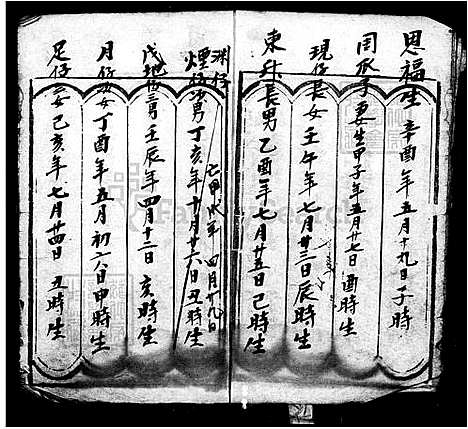 思福生 辛酉年五月十九日子時
周瓜子 妻生甲子年五月廿七日酉時生
現仔長女壬午年七月廿三日辰時生
東升長男乙酉年七月廿五日己時生
渊仔
亡甲戌年 四月廿九日
煙仔次男丁亥年十月廿六日丑時生
茂地仔三男壬辰年四月十二日 亥時生
月仔次女丁酉年五月初六日申時生
足仔三女己亥年七月廿四日 丑時生